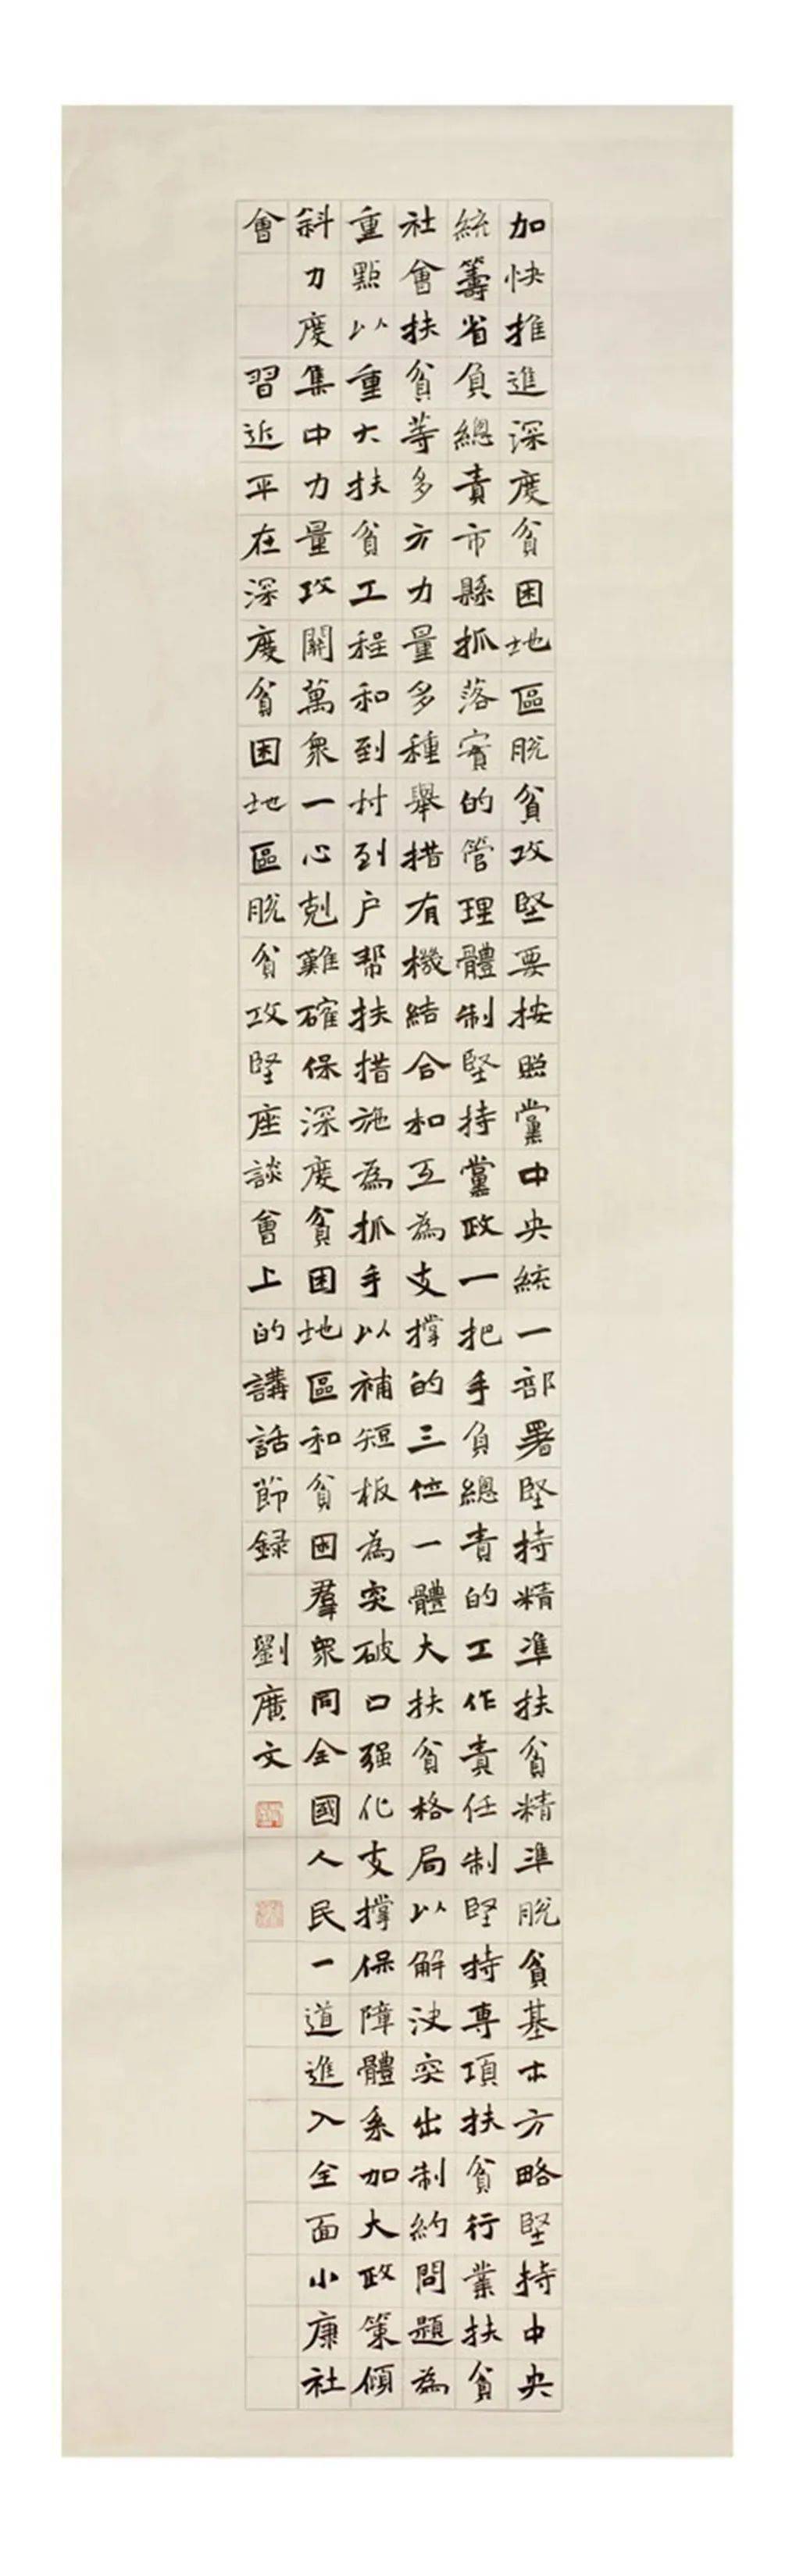 加快推進深度貧困地區脫貧攻堅要按照黨中央統一部署堅持精準扶貧精準脫貧基本方略堅持中央
統籌省負總責市縣抓落實的管理體制堅持黨政一把手負總責的工作責任制堅持專項扶貧行業扶貧
社會扶貧等多方力量多種舉措有機結合和互為支撐的三位一體大扶貧格局以解決突出制約問題為
重點以重大扶貧工程和到村到户帮扶措施為抓手以補短板為突破口强化支撐保障體系加大政策傾
斜力度集中力量攻關萬衆一心剋難確保深度貧困地區和貧困羣衆同全國人民一道進入全面小康社
會 習近平在深度貧困地區脫貧攻堅座談會上的講話節録 劉廣文